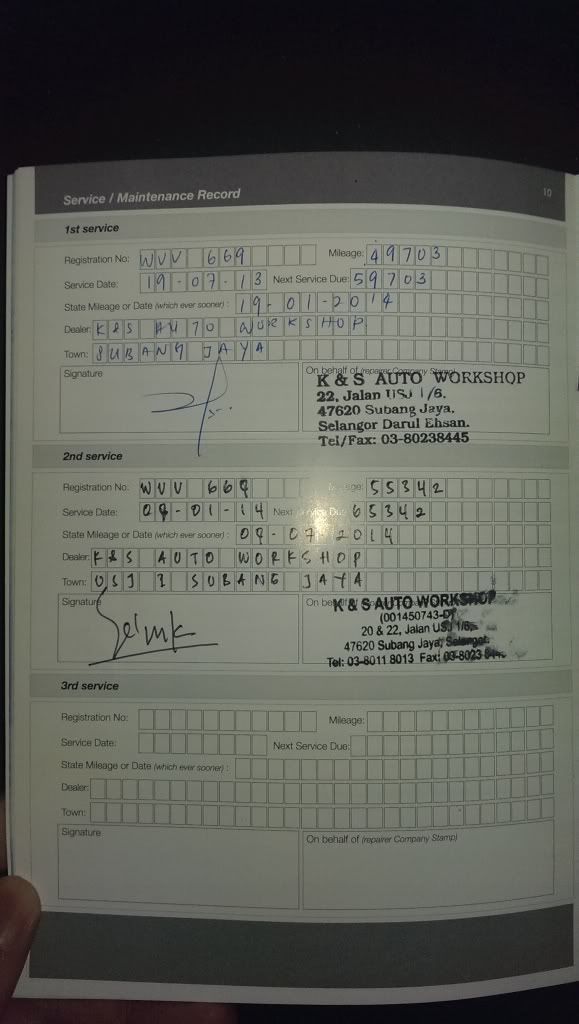 Service / Maintenance Record 10
1st service
Registration No: WVV 669 Mileage: 49703
Service Date: 19-07-13 Next Service Due: 59703
State Mileage or Date (which ever sooner) : 19-01-2014
Dealer: K&S AUTO WORKSHOP
Town: SUBANG JAYA
Signature On behalf of (repairer Company Stamp)
K & S AUTO WORKSHOP
22, Jalan USJ 1/6.
47620 Subang Jaya.
Selangor Darul Ehsan.
Tel/Fax: 03-80238445
2nd service
Registration No: WVV 669 Mileage: 55342
Service Date: 09-01-14 Next Service Due: 65342
State Mileage or Date (which ever sooner) : 09-07-2014
Dealer: K&S AUTO WORKSHOP
Town: USJ 1 SUBANG JAYA
Signature On behalf
K & S AUTO WORKSHOP
(001450743-D)
20 & 22, Jalan USJ 1/6,
47620 Subang Jaya, Selangor.
Tel: 03-8011 8013 Fax: 03-8023
3rd service
Registration No: Mileage:
Service Date: Next Service Due:
State Mileage or Date (which ever sooner) :
Dealer:
Town:
Signature On behalf of (repairer Company Stamp)